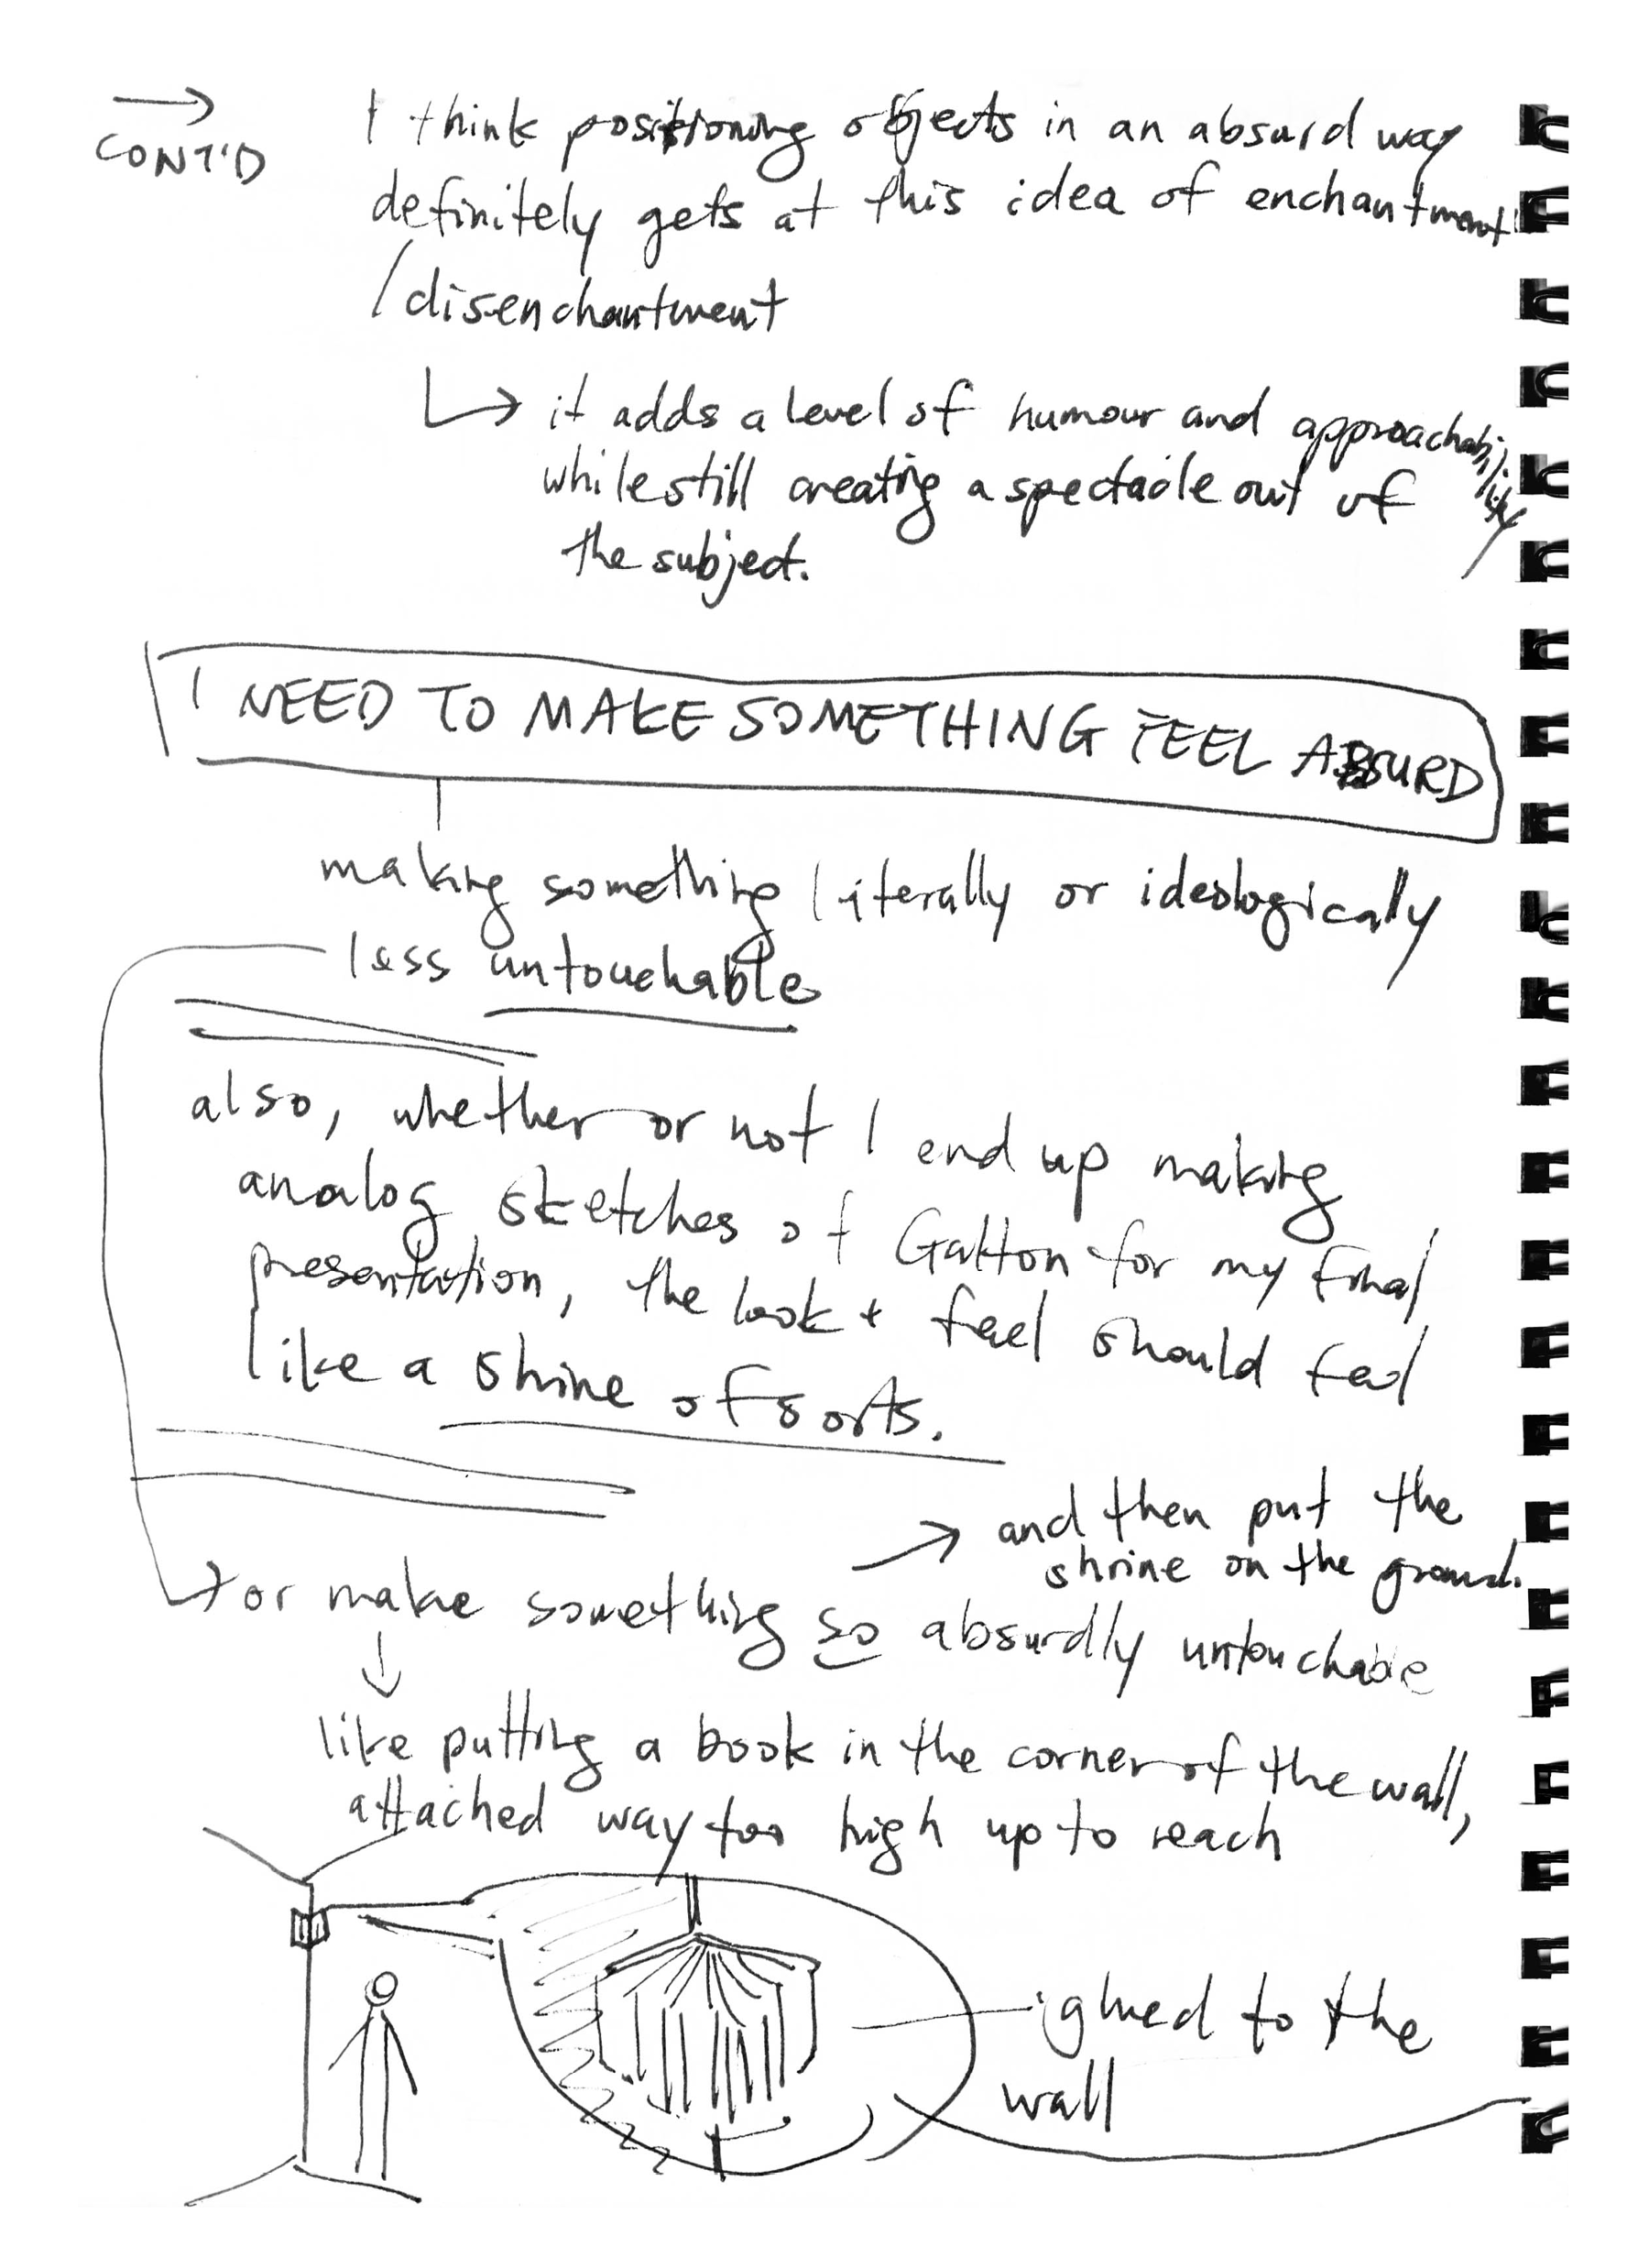 →
CONT'D
I think positioning objects in an absurd way
definitely gets at this idea of enchantment
/disenchantment
↳ it adds a level of humour and approachability
while still creating a spectacle out of
the subject.
I NEED TO MAKE SOMETHING FEEL ABSURD
making something literally or ideologically
less untouchable
also, whether or not I end up making
analog sketches of Galton for my final
presentation, the look + feel should feel
like a shrine of sorts.
→ and then put the
shrine on the ground.
→ or make something so absurdly untouchable
↓
like putting a book in the corner of the wall,
attached way too high up to reach
glued to the
wall